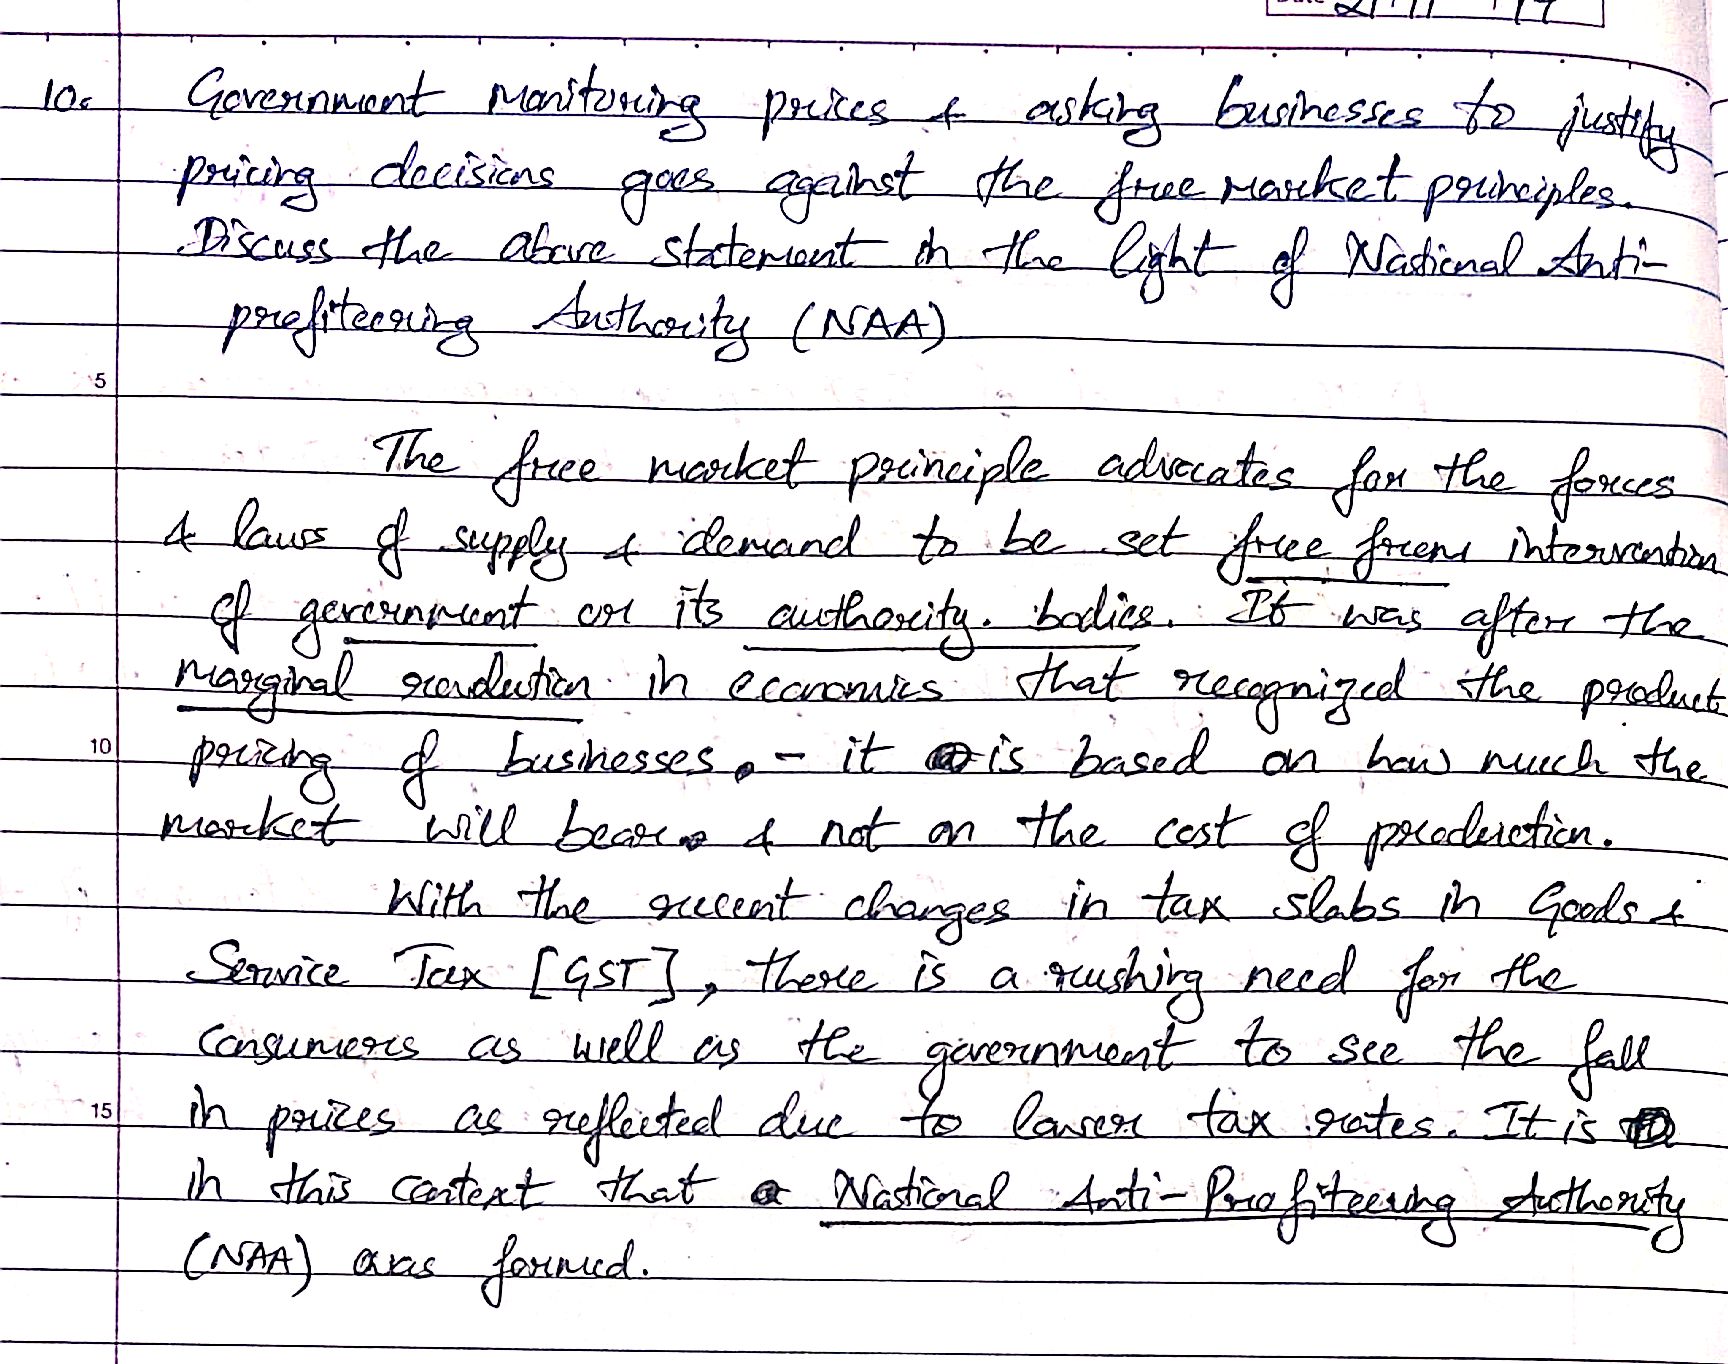 10. Government monitoring prices & asking businesses to justify
pricing decisions goes against the free market principles.
Discuss the above statement in the light of National Anti-
profiteering Authority (NAA)
5
The free market principle advocates for the forces
& laws of supply & demand to be set free from intervention
of government or its authority. bodies. It was after the
marginal revolution in economics that recognized the product
10
pricing of businesses. - it is based on how much the
market will bear. & not on the cost of production.
With the recent changes in tax slabs in Goods &
Service Tax [GST], there is a rushing need for the
consumers as well as the government to see the fall
15
in prices as reflected due to lower tax rates. It is
in this context that a National Anti-Profiteering Authority
(NAA) was formed.